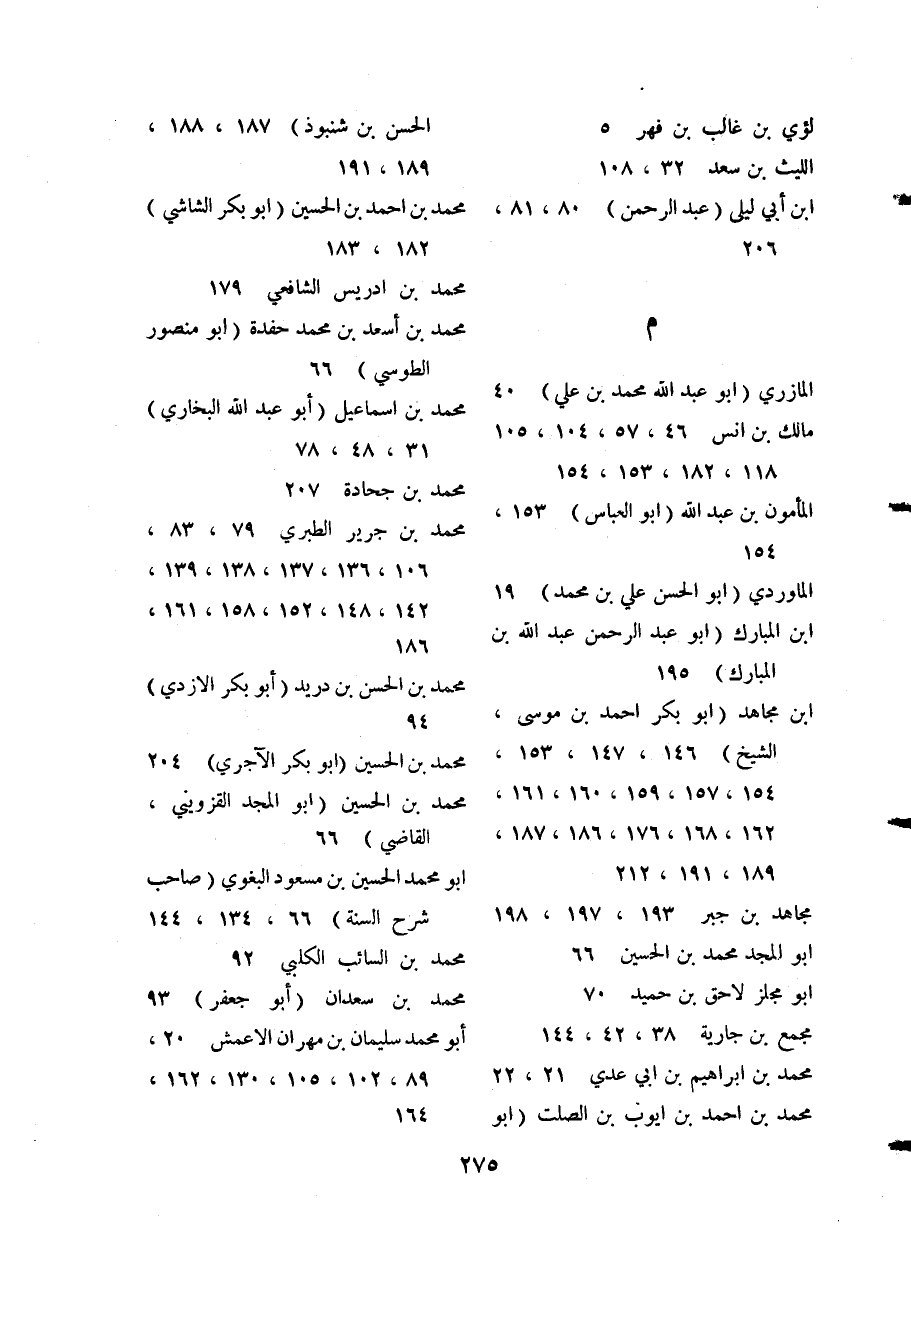 لؤي بن غالب بن فهر ٥
الليث بن سعد ٣٢ ، ١٠٨
ابن أبي ليلى ( عبد الرحمن ) ٨٠ ، ٨١ ،
٢٠٦
م
المازري ( ابو عبد الله محمد بن علي ) ٤٠
مالك بن انس ٤٦ ، ٥٧ ، ١٠٤ ، ١٠٥
١١٨ ، ١٨٢ ، ١٥٣ ، ١٥٤
المأمون بن عبد الله ( ابو العباس ) ١٥٣ ،
١٥٤
الماوردي ( ابو الحسن علي بن محمد ) ١٩
ابن المبارك ( ابو عبد الرحمن عبد الله بن
المبارك ) ١٩٥
ابن مجاهد ( ابو بكر احمد بن موسى ،
الشيخ ) ١٤٦ ، ١٤٧ ، ١٥٣ ،
١٥٤ ، ١٥٧ ، ١٥٩ ، ١٦٠ ، ١٦١ ،
١٦٢ ، ١٦٨ ، ١٧٦ ، ١٨٦ ، ١٨٧ ،
١٨٩ ، ١٩١ ، ٢١٢
مجاهد بن جبر ١٩٣ ، ١٩٧ ، ١٩٨
ابو المجد محمد بن الحسين ٦٦
ابو مجلز لاحق بن حميد ٧٠
مجمع بن جارية ٣٨ ، ٤٢ ، ١٤٤
محمد بن ابراهيم بن ابي عدي ٢١ ، ٢٢
محمد بن احمد بن ايوب بن الصلت ( ابو
الحسن بن شنبوذ ) ١٨٧ ، ١٨٨ ،
١٨٩ ، ١٩١
محمد بن احمد بن الحسين ( ابو بكر الشاشي )
١٨٢ ، ١٨٣
محمد بن ادريس الشافعي ١٧٩
محمد بن أسعد بن محمد حفدة ( ابو منصور
الطوسي ) ٦٦
محمد بن اسماعيل ( أبو عبد الله البخاري )
٣١ ، ٤٨ ، ٧٨
محمد بن جحادة ٢٠٧
محمد بن جرير الطبري ٧٩ ، ٨٣ ،
١٠٦ ، ١٣٦ ، ١٣٧ ، ١٣٨ ، ١٣٩ ،
١٤٢ ، ١٤٨ ، ١٥٢ ، ١٥٨ ، ١٦١ ،
١٨٦
محمد بن الحسن بن دريد ( أبو بكر الازدي )
٩٤
محمد بن الحسين (ابو بكر الآجري) ٢٠٤
محمد بن الحسين ( ابو المجد القزويني ،
القاضي ) ٦٦
ابو محمد الحسين بن مسعود البغوي ( صاحب
شرح السنة ) ٦٦ ، ١٣٤ ، ١٤٤
محمد بن السائب الكلبي ٩٢
محمد بن سعدان ( أبو جعفر ) ٩٣
أبو محمد سليمان بن مهران الاعمش ٢٠ ،
٨٩ ، ١٠٢ ، ١٠٥ ، ١٣٠ ، ١٦٢ ،
١٦٤
٢٧٥